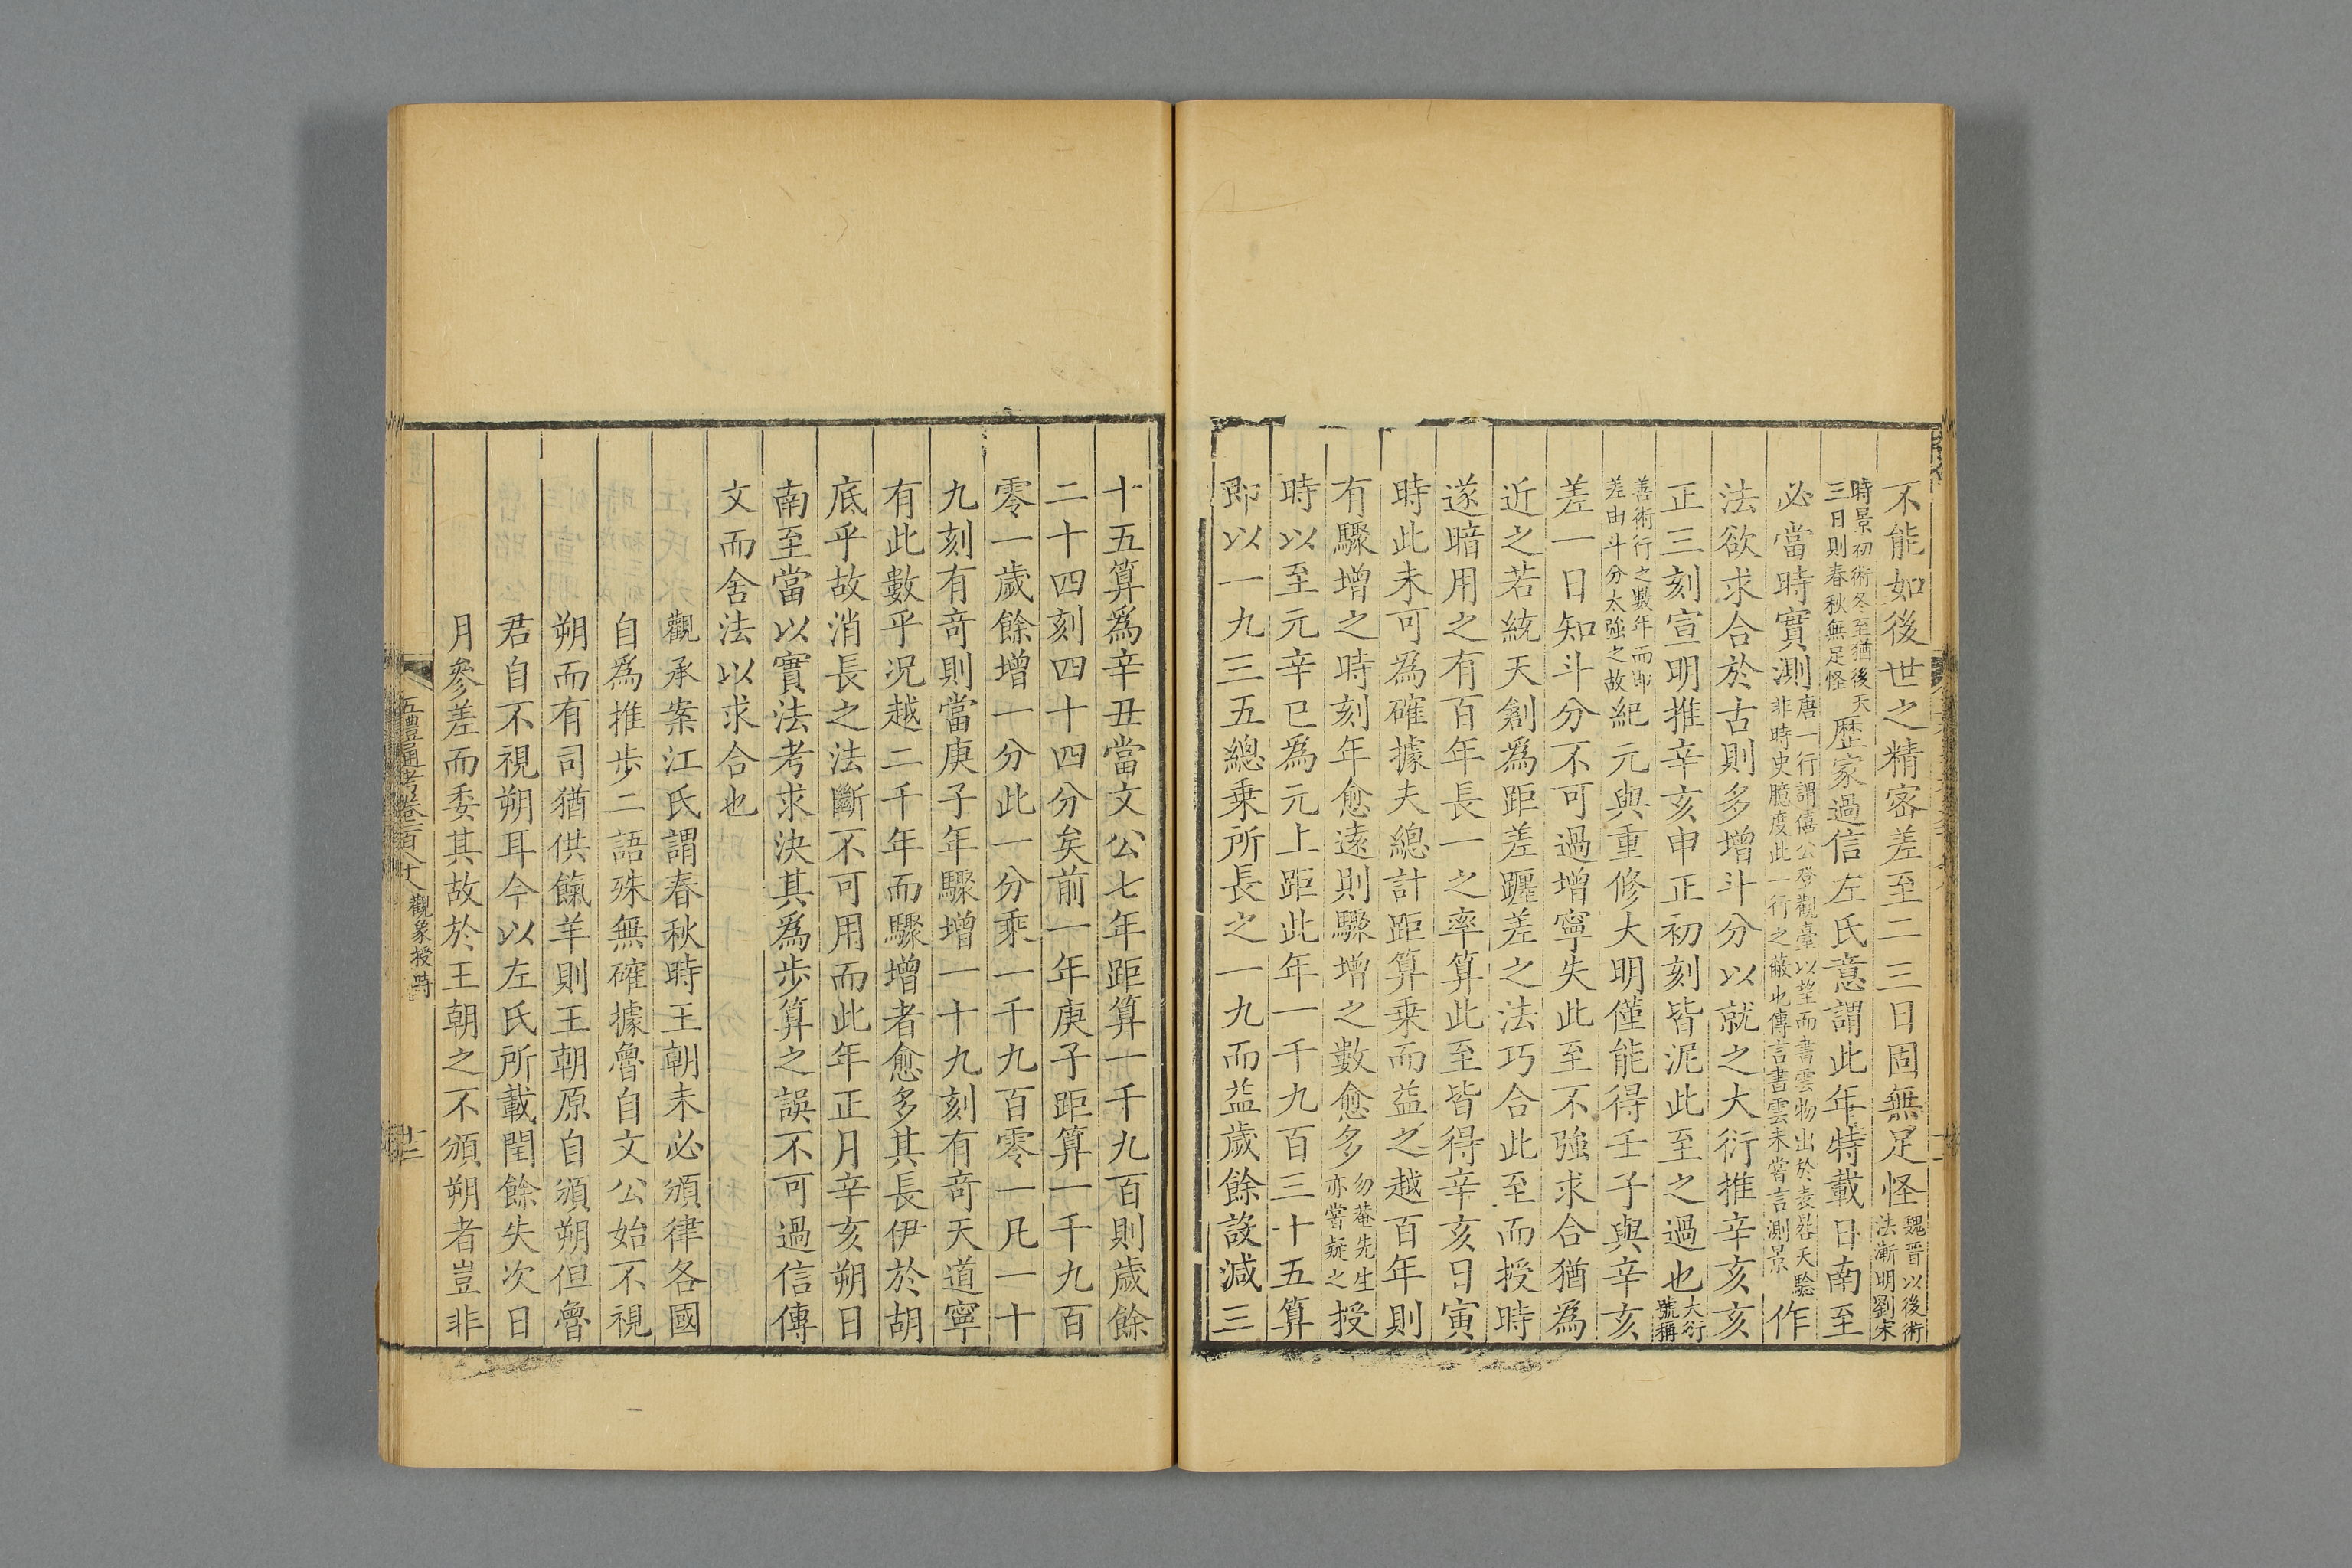 不能如後世之精宻差至二三日固無足怪魏晉以後術法漸明劉宋
時景初術冬至猶後天三日則春秋無足怪歷家過信左氏意謂此年特載日南至
必當時實測唐一行謂僖公登觀臺以望而書雲物出於表晷天驗非時史臆度此一行之蔽也傳言書雲未嘗言測景作
法欲求合於古則多增斗分以就之大衍推辛亥亥
正三刻宣明推辛亥申正初刻皆泥此至之過也大衍號稱
善術行之數年而即差由斗分太強之故紀元與重修大明僅能得壬子與辛亥
差一日知斗分不可過增寧失此至不強求合猶爲
近之若統天創爲距差躔差之法巧合此至而授時
遂暗用之有百年長一之率算此至皆得辛亥日寅
時此未可爲確據夫總計距算乗而益之越百年則
有驟增之時刻年愈遠則驟增之數愈多勿菴先生亦嘗疑之授
時以至元辛巳爲元上距此年一千九百三十五算
即以一九三五總乗所長之一九而益歲餘設減三
十五算爲辛丑當文公七年距算一千九百則歲餘
二十四刻四十四分矣前一年庚子距算一千九百
零一歲餘增一分此一分乘一千九百零一凡一十
九刻有竒則當庚子年驟增一十九刻有竒天道寧
有此數乎况越二千年而驟增者愈多其長伊於胡
底乎故消長之法斷不可用而此年正月辛亥朔日
南至當以實法考求決其爲步算之誤不可過信傳
文而舍法以求合也
觀承案江氏謂春秋時王朝未必頒律各國
自爲推步二語殊無確據魯自文公始不視
朔而有司猶供餼羊則王朝原自頒朔但魯
君自不視朔耳今以左氏所載閏餘失次日
月參差而委其故於王朝之不頒朔者豈非
五禮通考卷一百八十八 觀象授時 十三